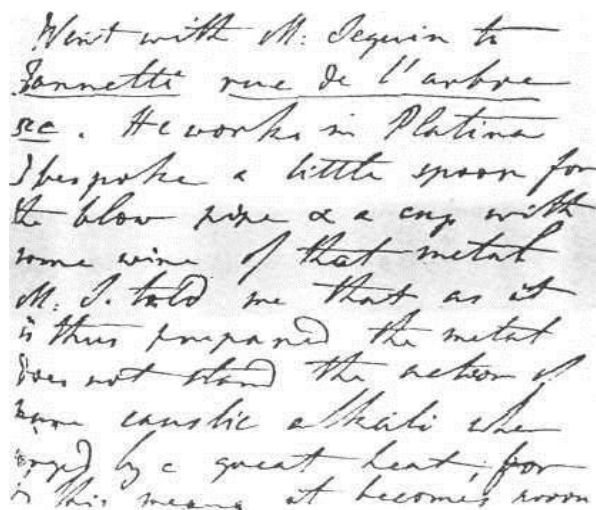 Went with M: Seguin to
Jannetti rue de l'arbre
sec. He works in Platina
I bespoke a little spoon for
the blow pipe & a cup with
some wire of that metal
M: S. told me that as it
is thus prepared the metal
does not stand the action of
pure caustic alkali when
urged by a great heat, for
by this means it becomes soon